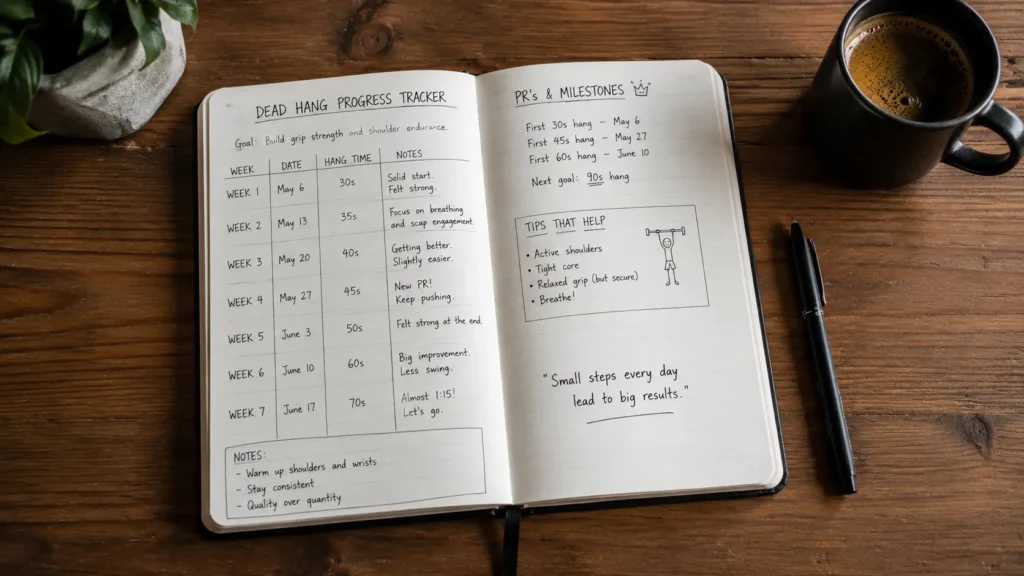 DEAD HANG PROGRESS TRACKER
Goal: Build grip strength and shoulder endurance.
WEEK DATE HANG TIME NOTES
WEEK 1 May 6 30s Solid start.
Felt strong.
WEEK 2 May 13 35s Focus on breathing
and scap engagement.
WEEK 3 May 20 40s Getting better.
Slightly easier.
WEEK 4 May 27 45s New PR!
Keep pushing.
WEEK 5 June 3 50s Felt strong at the end.
WEEK 6 June 10 60s Big improvement.
Less swing.
WEEK 7 June 17 70s Almost 1:15!
Let's go.
NOTES:
- Warm up shoulders and wrists
- Stay consistent
- Quality over quantity
PR's & MILESTONES
First 30s hang - May 6
First 45s hang - May 27
First 60s hang - June 10
Next goal: 90s hang
TIPS THAT HELP
• Active shoulders
• Tight core
• Relaxed grip (but secure)
• Breathe!
"Small steps every day
lead to big results."